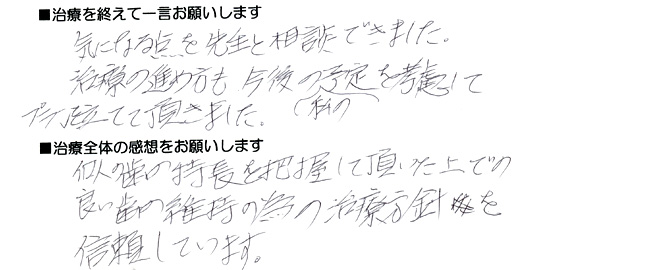 ■治療を終えて一言お願いします
気になる点を先生と相談できました。
治療の進め方も今後の予定を考慮して
(私の
プラン立てて頂きました。
■治療全体の感想をお願いします
個人の歯の特長を把握して頂いた上での
良い歯の維持の為の治療方針を
信頼しています。